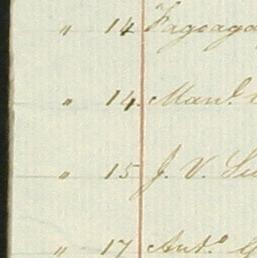 " 14 Fagoaga
" 14 Manl.
" 15 J. V.
" 17 Anto